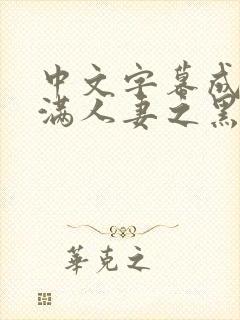 中文字幕成
满人妻之黑
華克之